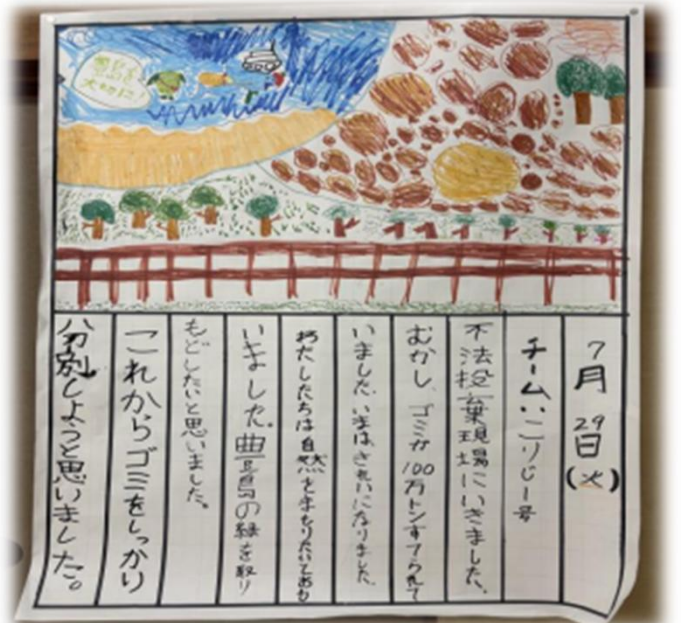 大切に
7月29日(火)
チームいこりじー号
不法投棄現場にいきました、
むかし、ゴミが100万トンすてられて
いました。いまはきれいになりました。
わたしたちは自然をまもりたいとおも
いました。豊島の緑を取り
もどしたいと思いました。
これからゴミをしっかり
分別しようと思いました。